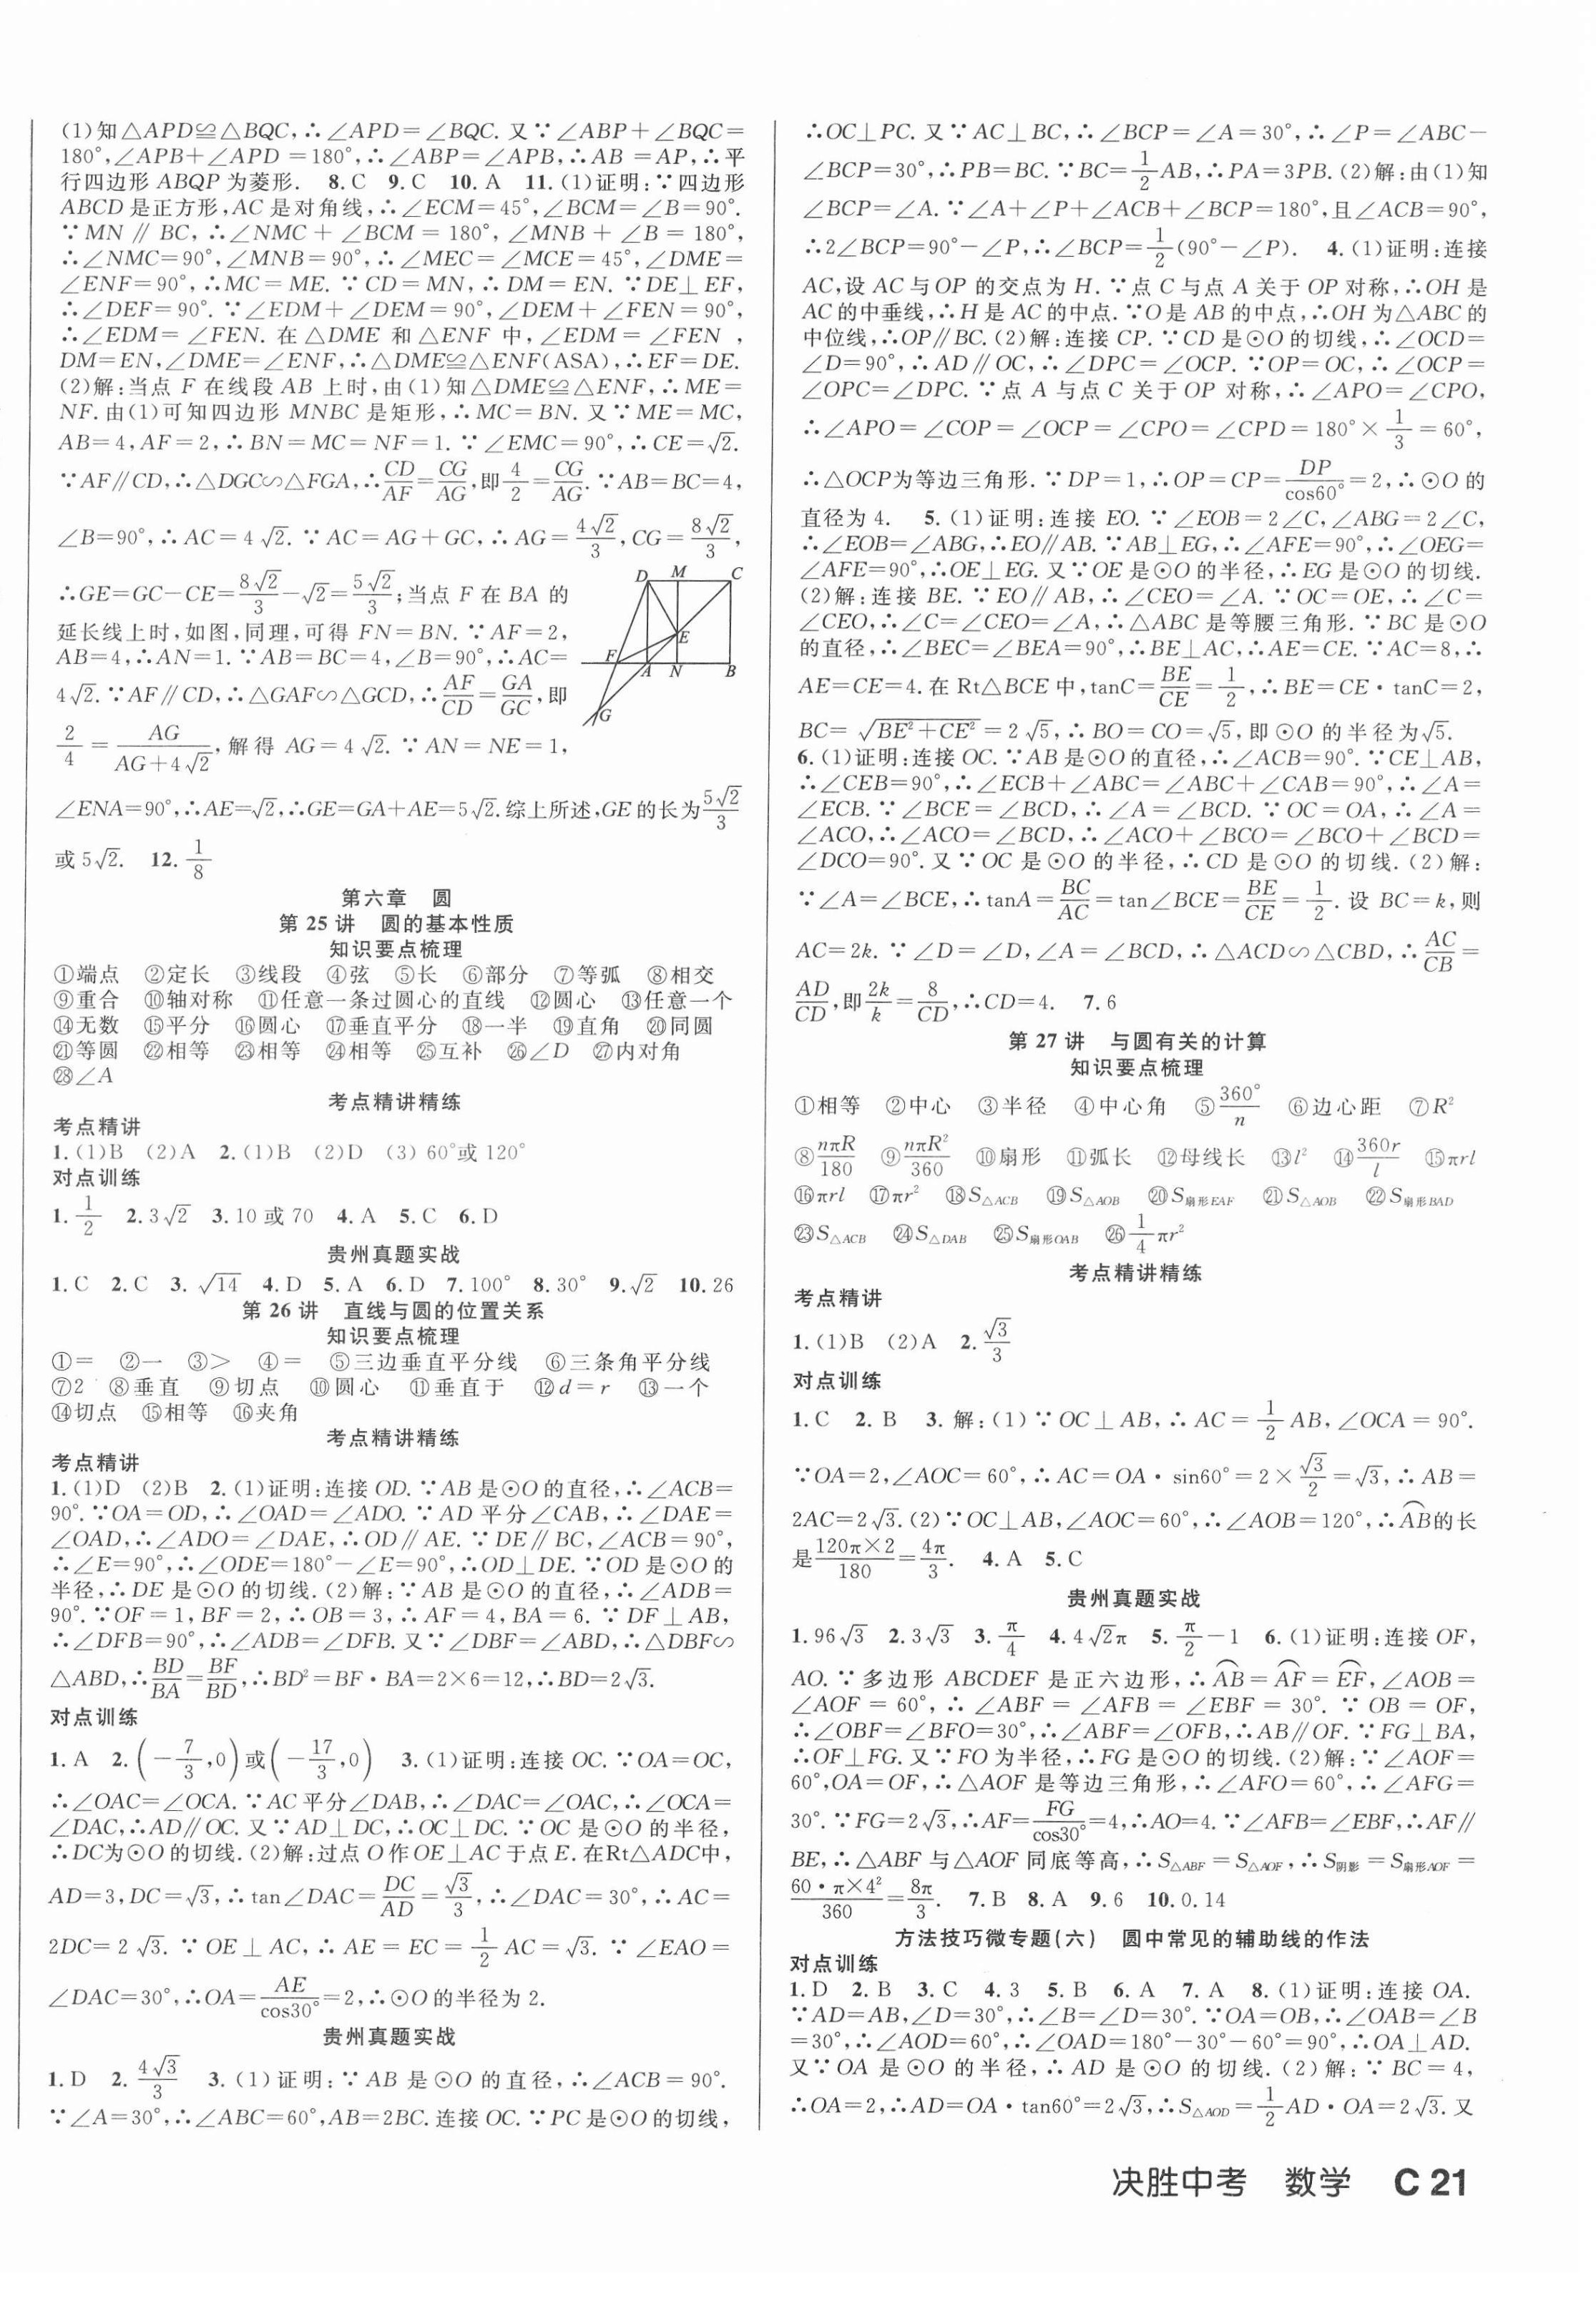 (1)知△APD≌△BQC,∴∠APD=∠BQC.又∵∠ABP+∠BQC=
180°,∠APB+∠APD=180°,∴∠ABP=∠APB,∴AB=AP,∴平
行四边形ABQP为菱形. 8.C 9.C 10.A 11.(1)证明:∵四边形
ABCD是正方形,AC是对角线,∴∠ECM=45°,∠BCM=∠B=90°.
∵MN∥BC,∴∠NMC+∠BCM=180°,∠MNB+∠B=180°,
∴∠NMC=90°,∠MNB=90°,∴∠MEC=∠MCE=45°,∠DME=
∠ENF=90°,∴MC=ME.∵CD=MN,∴DM=EN.∵DE⊥EF,
∴∠DEF=90°.∵∠EDM+∠DEM=90°,∠DEM+∠FEN=90°,
∴∠EDM=∠FEN.在△DME和△ENF中,∠EDM=∠FEN,
DM=EN,∠DME=∠ENF,∴△DME≌△ENF(ASA),∴EF=DE.
(2)解:当点F在线段AB上时,由(1)知△DME≌△ENF,∴ME=
NF.由(1)可知四边形MNBC是矩形,∴MC=BN.又∵ME=MC,
AB=4,AF=2,∴BN=MC=NF=1.∵∠EMC=90°,∴CE=√2.
∵AF∥CD,∴△DGC∽△FGA,∴CD/AF=CG/AG,即4/2=CG/AG.∵AB=BC=4,
∠B=90°,∴AC=4√2.∵AC=AG+GC,∴AG=4√2/3,CG=8√2/3,
∴GE=GC-CE=8√2/3-√2=5√2/3;当点F在BA的
延长线上时,如图,同理,可得FN=BN.∵AF=2,
AB=4,∴AN=1.∵AB=BC=4,∠B=90°,∴AC=
4√2.∵AF∥CD,∴△GAF∽△GCD,∴AF/CD=GA/GC,即
2/4=AG/(AG+4√2),解得AG=4√2.∵AN=NE=1,
D M C
E
F A N B
G
∠ENA=90°,∴AE=√2,∴GE=GA+AE=5√2.综上所述,GE的长为5√2/3
或5√2. 12.1/8
第六章 圆
第25讲 圆的基本性质
知识要点梳理
①端点 ②定长 ③线段 ④弦 ⑤长 ⑥部分 ⑦等弧 ⑧相交
⑨重合 ⑩轴对称 ⑪任意一条过圆心的直线 ⑫圆心 ⑬任意一个
⑭无数 ⑮平分 ⑯圆心 ⑰垂直平分 ⑱一半 ⑲直角 ⑳同圆
㉑等圆 ㉒相等 ㉓相等 ㉔相等 ㉕互补 ㉖∠D ㉗内对角
㉘∠A
考点精讲精练
考点精讲
1.(1)B (2)A 2.(1)B (2)D (3)60°或120°
对点训练
1.1/2 2.3√2 3.10或70 4.A 5.C 6.D
贵州真题实战
1.C 2.C 3.√14 4.D 5.A 6.D 7.100° 8.30° 9.√2 10.26
第26讲 直线与圆的位置关系
知识要点梳理
①= ②一 ③> ④= ⑤三边垂直平分线 ⑥三条角平分线
⑦2 ⑧垂直 ⑨切点 ⑩圆心 ⑪垂直于 ⑫d=r ⑬一个
⑭切点 ⑮相等 ⑯夹角
考点精讲精练
考点精讲
1.(1)D (2)B 2.(1)证明:连接OD.∵AB是⊙O的直径,∴∠ACB=
90°.∵OA=OD,∴∠OAD=∠ADO.∵AD平分∠CAB,∴∠DAE=
∠OAD,∴∠ADO=∠DAE,∴OD∥AE.∵DE∥BC,∠ACB=90°,
∴∠E=90°,∴∠ODE=180°-∠E=90°,∴OD⊥DE.∵OD是⊙O的
半径,∴DE是⊙O的切线.(2)解:∵AB是⊙O的直径,∴∠ADB=
90°.∵OF=1,BF=2,∴OB=3,∴AF=4,BA=6.∵DF⊥AB,
∴∠DFB=90°,∴∠ADB=∠DFB.又∵∠DBF=∠ABD,∴△DBF∽
△ABD,∴BD/BA=BF/BD,∴BD²=BF·BA=2×6=12,∴BD=2√3.
对点训练
1.A 2.(-7/3,0)或(-17/3,0) 3.(1)证明:连接OC.∵OA=OC,
∴∠OAC=∠OCA.∵AC平分∠DAB,∴∠DAC=∠OAC,∴∠OCA=
∠DAC,∴AD∥OC.又∵AD⊥DC,∴OC⊥DC.∵OC是⊙O的半径,
∴DC为⊙O的切线.(2)解:过点O作OE⊥AC于点E.在Rt△ADC中,
AD=3,DC=√3,∴tan∠DAC=DC/AD=√3/3,∴∠DAC=30°,∴AC=
2DC=2√3.∵OE⊥AC,∴AE=EC=1/2AC=√3.∵∠EAO=
∠DAC=30°,∴OA=AE/cos30°=2,∴⊙O的半径为2.
贵州真题实战
1.D 2.4√3/3 3.(1)证明:∵AB是⊙O的直径,∴∠ACB=90°.
∵∠A=30°,∴∠ABC=60°,AB=2BC.连接OC.∵PC是⊙O的切线,
∴OC⊥PC.又∵AC⊥BC,∴∠BCP=∠A=30°,∴∠P=∠ABC-
∠BCP=30°,∴PB=BC.∵BC=1/2AB,∴PA=3PB.(2)解:由(1)知
∠BCP=∠A.∵∠A+∠P+∠ACB+∠BCP=180°,且∠ACB=90°,
∴2∠BCP=90°-∠P,∴∠BCP=1/2(90°-∠P). 4.(1)证明:连接
AC,设AC与OP的交点为H.∵点C与点A关于OP对称,∴OH是
AC的中垂线,∴H是AC的中点.∵O是AB的中点,∴OH为△ABC的
中位线,∴OP∥BC.(2)解:连接CP.∵CD是⊙O的切线,∴∠OCD=
∠D=90°,∴AD∥OC,∴∠DPC=∠OCP.∵OP=OC,∴∠OCP=
∠OPC=∠DPC.∵点A与点C关于OP对称,∴∠APO=∠CPO,
∴∠APO=∠COP=∠OCP=∠CPO=∠CPD=180°×1/3=60°,
∴△OCP为等边三角形.∵DP=1,∴OP=CP=DP/cos60°=2,∴⊙O的
直径为4. 5.(1)证明:连接EO.∵∠EOB=2∠C,∠ABG=2∠C,
∴∠EOB=∠ABG,∴EO∥AB.∵AB⊥EG,∴∠AFE=90°,∴∠OEG=
∠AFE=90°,∴OE⊥EG.又∵OE是⊙O的半径,∴EG是⊙O的切线.
(2)解:连接BE.∵EO∥AB,∴∠CEO=∠A.∵OC=OE,∴∠C=
∠CEO,∴∠C=∠CEO=∠A,∴△ABC是等腰三角形.∵BC是⊙O
的直径,∴∠BEC=∠BEA=90°,∴BE⊥AC,∴AE=CE.∵AC=8,∴
AE=CE=4.在Rt△BCE中,tanC=BE/CE=1/2,∴BE=CE·tanC=2,
BC=√(BE²+CE²)=2√5,∴BO=CO=√5,即⊙O的半径为√5.
6.(1)证明:连接OC.∵AB是⊙O的直径,∴∠ACB=90°.∵CE⊥AB,
∴∠CEB=90°,∴∠ECB+∠ABC=∠ABC+∠CAB=90°,∴∠A=
∠ECB.∵∠BCE=∠BCD,∴∠A=∠BCD.∵OC=OA,∴∠A=
∠ACO,∴∠ACO=∠BCD,∴∠ACO+∠BCO=∠BCO+∠BCD=
∠DCO=90°.又∵OC是⊙O的半径,∴CD是⊙O的切线.(2)解:
∵∠A=∠BCE,∴tanA=BC/AC=tan∠BCE=BE/CE=1/2.设BC=k,则
AC=2k.∵∠D=∠D,∠A=∠BCD,∴△ACD∽△CBD,∴AC/CB=
AD/CD,即2k/k=8/CD,∴CD=4. 7.6
第27讲 与圆有关的计算
知识要点梳理
①相等 ②中心 ③半径 ④中心角 ⑤360°/n ⑥边心距 ⑦R²
⑧nπR/180 ⑨nπR²/360 ⑩扇形 ⑪弧长 ⑫母线长 ⑬l² ⑭360r/l ⑮πrl
⑯πrl ⑰πr² ⑱S△ACB ⑲S△AOB ⑳S扇形EAF ㉑S△AOB ㉒S扇形BAD
㉓S△ACB ㉔S△DAB ㉕S扇形OAB ㉖1/4πr²
考点精讲精练
考点精讲
1.(1)B (2)A 2.√3/3
对点训练
1.C 2.B 3.解:(1)∵OC⊥AB,∴AC=1/2AB,∠OCA=90°.
∵OA=2,∠AOC=60°,∴AC=OA·sin60°=2×√3/2=√3,∴AB=
2AC=2√3.(2)∵OC⊥AB,∠AOC=60°,∴∠AOB=120°,∴A͡B的长
是120π×2/180=4π/3. 4.A 5.C
贵州真题实战
1.96√3 2.3√3 3.π/4 4.4√2π 5.π/2-1 6.(1)证明:连接OF,
AO.∵多边形ABCDEF是正六边形,∴A͡B=A͡F=E͡F,∠AOB=
∠AOF=60°,∴∠ABF=∠AFB=∠EBF=30°.∵OB=OF,
∴∠OBF=∠BFO=30°,∴∠ABF=∠OFB,∴AB∥OF.∵FG⊥BA,
∴OF⊥FG.又∵FO为半径,∴FG是⊙O的切线.(2)解:∵∠AOF=
60°,OA=OF,∴△AOF是等边三角形,∴∠AFO=60°,∴∠AFG=
30°.∵FG=2√3,∴AF=FG/cos30°=4,∴AO=4.∵∠AFB=∠EBF,∴AF∥
BE,∴△ABF与△AOF同底等高,∴S△ABF=S△AOF,∴S阴影=S扇形AOF=
60·π×4²/360=8π/3. 7.B 8.A 9.6 10.0.14
方法技巧微专题(六) 圆中常见的辅助线的作法
对点训练
1.D 2.B 3.C 4.3 5.B 6.A 7.A 8.(1)证明:连接OA.
∵AD=AB,∠D=30°,∴∠B=∠D=30°.∵OA=OB,∴∠OAB=∠B
=30°,∴∠AOD=60°,∴∠OAD=180°-30°-60°=90°,∴OA⊥AD.
又∵OA是⊙O的半径,∴AD是⊙O的切线.(2)解:∵BC=4,
∴OA=2,∴AD=OA·tan60°=2√3,∴S△AOD=1/2AD·OA=2√3.又
决胜中考 数学 C 21